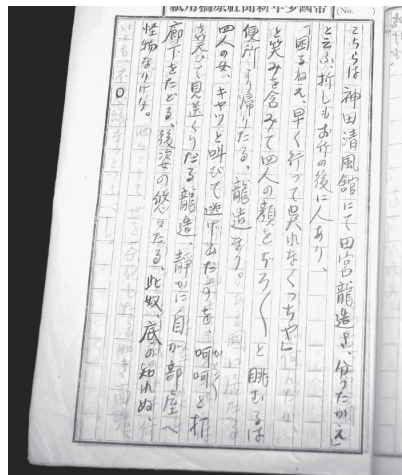 帝國少年新聞社原稿用紙
(No.
こちらは神田清風館にて田宮龍造よ、分つたかえ」
と云ふ、折しもお竹の後に人あり、
「困るねえ、早く行つて呉れなくつちや」
と笑みを含みて四人の顔をぢろ〱と眺むるは
便所帰りたる、龍造なり。
四人の女、キヤツと叫びて逃げ出だすを、呵呵と打
笑ひて見送りたる龍造、静かに自が部屋へ
廊下をたどる、後姿の悠々たる、此奴、底の知れぬ、
怪物なりけり。